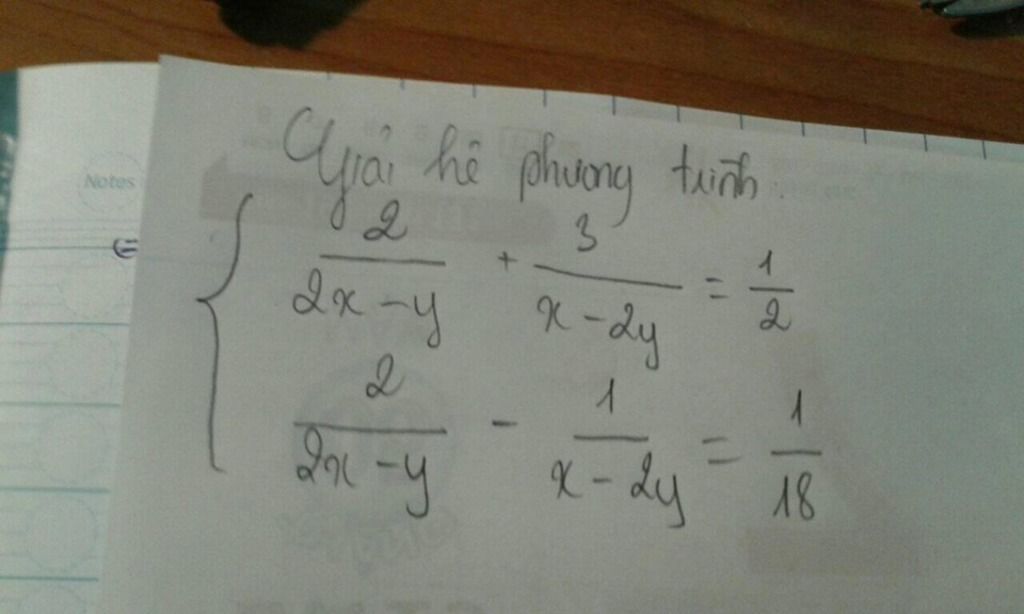 Notes
Giải hệ phương trình:
2/(2x-y) + 3/(x-2y) = 1/2
2/(2x-y) - 1/(x-2y) = 1/18